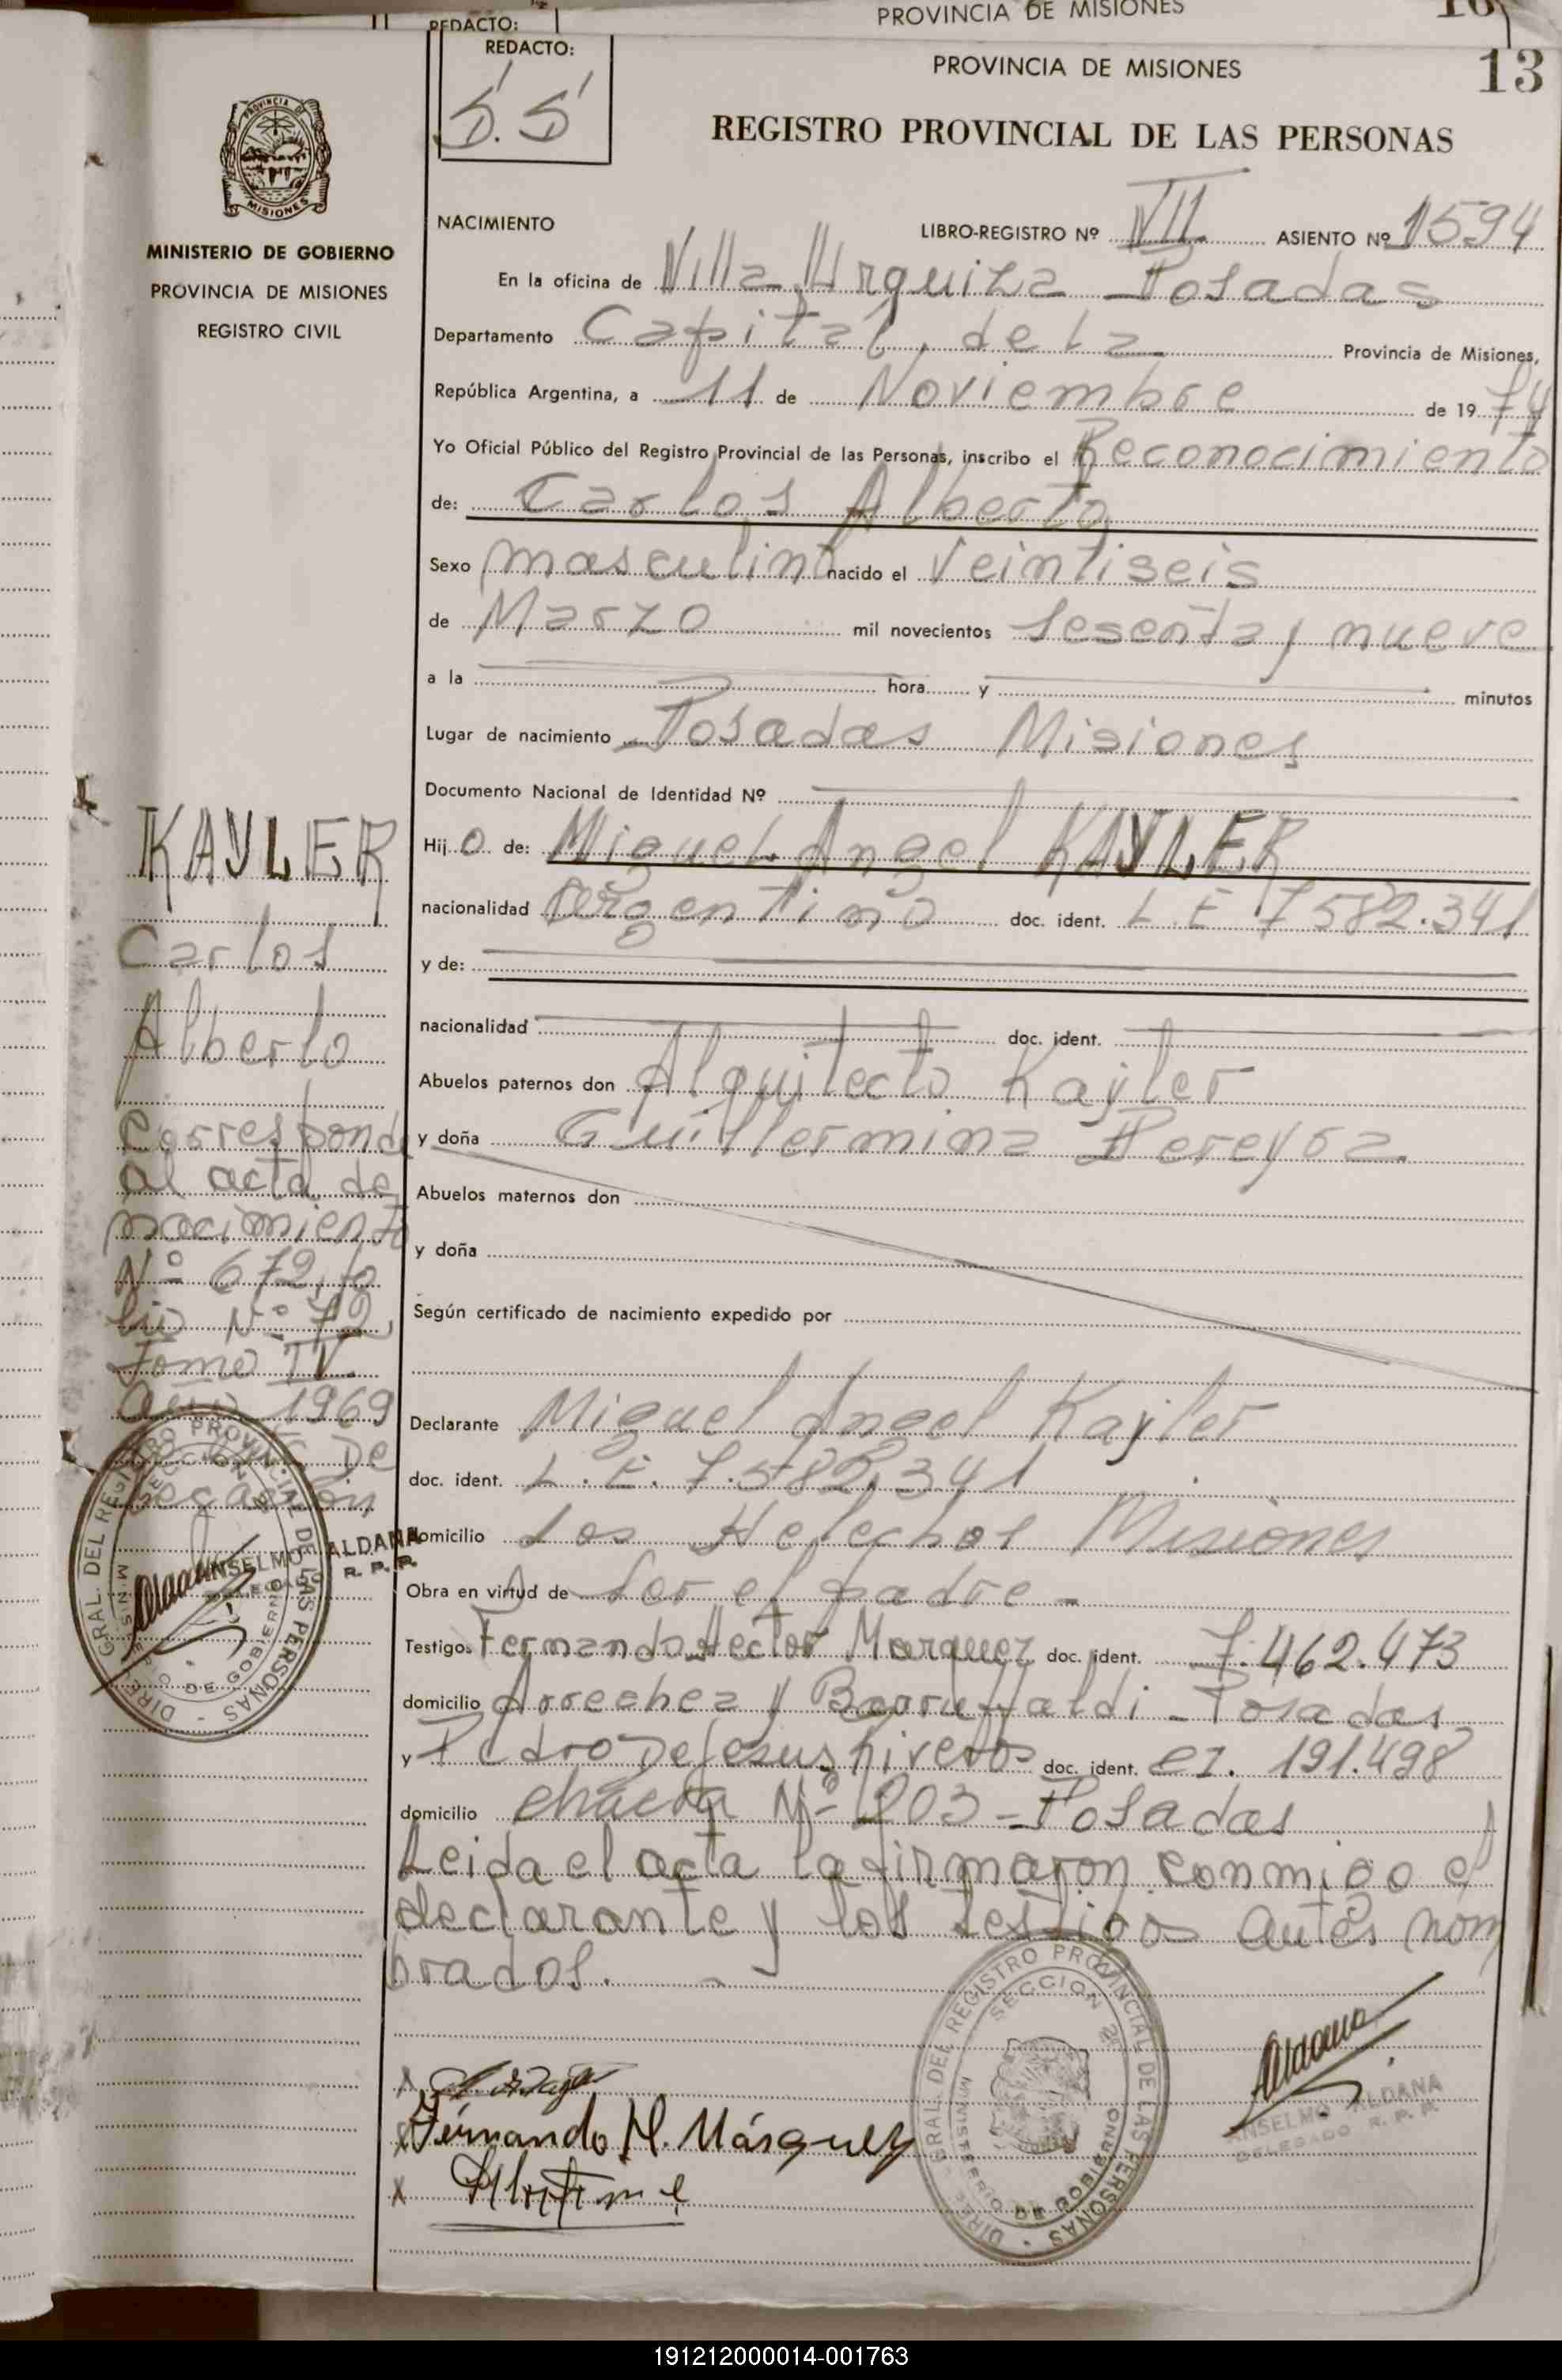 PROVINCIA DE MISIONES
REDACTO:
REDACTO:
S.S
PROVINCIA DE MISIONES
13
REGISTRO PROVINCIAL DE LAS PERSONAS
PROVINCIA DE
MISIONES
MINISTERIO DE GOBIERNO
PROVINCIA DE MISIONES
REGISTRO CIVIL
NACIMIENTO
LIBRO-REGISTRO Nº VII ASIENTO Nº 1594
En la oficina de Villa Urquiza Posadas
Departamento Capital, de la Provincia de Misiones,
República Argentina, a 11 de Noviembre de 1974
Yo Oficial Público del Registro Provincial de las Personas, inscribo el Reconocimiento
de: Carlos Alberto
Sexo masculino nacido el Veintiseis
de Marzo mil novecientos sesenta y nueve
a la hora y minutos
Lugar de nacimiento Posadas Misiones
Documento Nacional de Identidad Nº
Hijo de: Miguel Angel KAYLER
nacionalidad Argentino doc. ident. L.E 7582.341
y de:
nacionalidad doc. ident.
Abuelos paternos don Alquitecto Kayler
y doña Guillermina Pereyra
Abuelos maternos don
y doña
Según certificado de nacimiento expedido por
Declarante Miguel Angel Kayler
doc. ident. L.E. 7.582.341
domicilio Los Helechos Misiones
Obra en virtud de Ser el padre -
Testigos Fernando Hector Marquez doc. ident. 7.462.473
domicilio Arrechea y Barrufaldi - Posadas
y Pedro De Jesus doc. ident. 191.498
domicilio chacra Nº 203 - Posadas
Leida el acta la firmaron conmigo el
declarante y los testigos antes nom
brados.
KAYLER
Carlos
Alberto
Corresponde
al acta de
nacimiento
Nº 672, fo
lio Nº 72,
Tomo IV
Año 1969
DIREC. GRAL. DEL REGISTRO PROVINCIAL DE LAS PERSONAS
MINISTERIO DE GOBIERNO
ANSELMO ALDANA
DELEGADO R. P. P.
X
X Fernando H. Márquez
X
DIREC. GRAL. DEL REGISTRO PROVINCIAL DE LAS PERSONAS
SECCION
MINISTERIO DE GOBIERNO
Aldana
ANSELMO ALDANA
DELEGADO R. P. P.
191212000014-001763